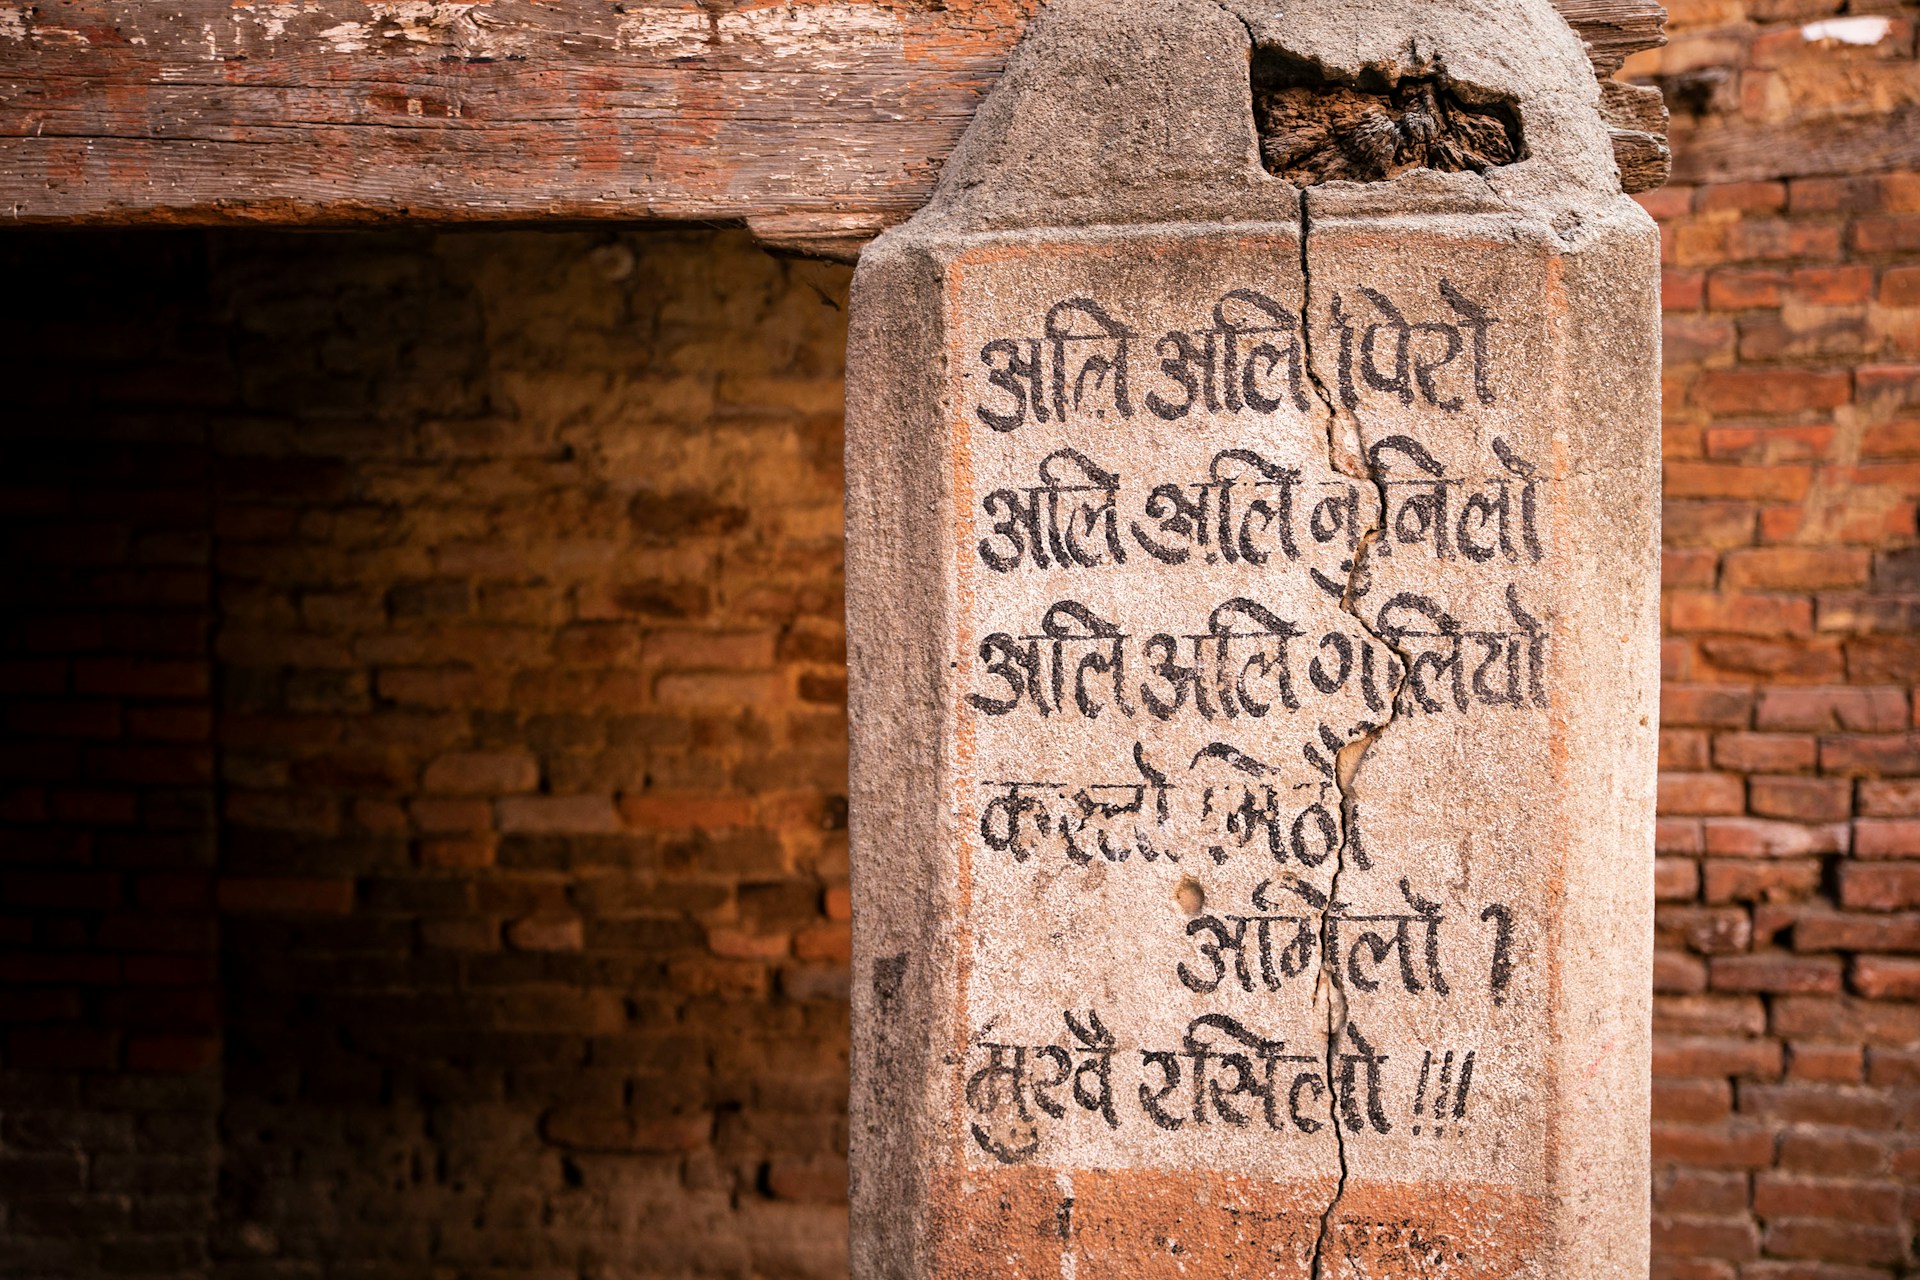 अलि अलि पिरो
अलि अलि नुनिलो
अलि अलि गुलियो
कस्तो मिठो
अमिलो ?
मुखै रसिलो !!!